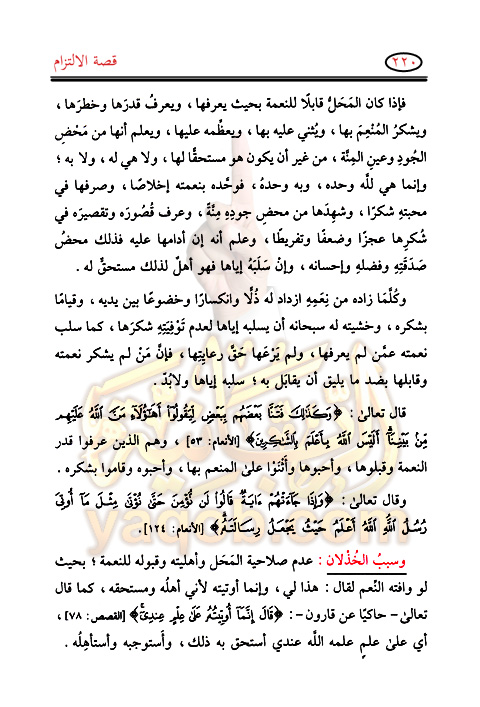 ٢٢٠
قصة الالتزام
فإذا كان المَحَلُّ قابلًا للنعمة بحيث يعرفها ، ويعرفُ قدرَها وخطرَها ،
ويشكرُ المُنْعِمَ بها ، ويُثني عليه بها ، ويعظِّمه عليها ، ويعلم أنها من مَحْضِ
الجُودِ وعينِ المِنَّة ، من غير أن يكون هو مستحقًّا لها ، ولا هي له ، ولا به ؛
وإنما هي للَّه وحده ، وبه وحدهُ ، فوحَّده بنعمته إخلاصًا ، وصرفها في
محبتهِ شكرًا ، وشهِدَها من محضِ جودِهِ مِنَّةً ، وعرف قُصُورَه وتقصيرَه في
شُكرِها عجزًا وضعفًا وتفريطًا ، وعلم أنه إن أدامها عليه فذلك محضُ
صَدَقَتِهِ وفضلِهِ وإحسانه ، وإنْ سَلَبَهُ إياها فهو أهلٌ لذلك مستحقٌّ له .
وكُلَّمَا زاده من نِعَمِهِ ازداد له ذُلًّا وانكسارًا وخضوعًا بين يديه ، وقيامًا
بشكره ، وخشيته له سبحانه أن يسلبه إياها لعدم تَوْفِيَتِهِ شكرَها ، كما سلب
نعمته عمَّن لم يعرفها ، ولم يَرْعَها حَقَّ رعايتِها ، فإنَّ مَنْ لم يشكر نعمته
وقابلها بضد ما يليق أن يقابَل به ؛ سلبه إياها ولابُدَّ .
قال تعالىٰ : ﴿وَكَذَٰلِكَ فَتَنَّا بَعْضَهُم بِبَعْضٍ لِّيَقُولُوٓا۟ أَهَٰٓؤُلَآءِ مَنَّ ٱللَّهُ عَلَيْهِم
مِّنۢ بَيْنِنَآ ۗ أَلَيْسَ ٱللَّهُ بِأَعْلَمَ بِٱلشَّٰكِرِينَ﴾ [الأنعام: ٥٣] ، وهم الذين عرفوا قدر
النعمة وقبلوها ، وأحبوها وأَثْنَوْا علىٰ المنعم بها ، وأحبوه وقاموا بشكره .
وقال تعالىٰ : ﴿وَإِذَا جَآءَتْهُمْ ءَايَةٌ قَالُوا۟ لَن نُّؤْمِنَ حَتَّىٰ نُؤْتَىٰ مِثْلَ مَآ أُوتِىَ
رُسُلُ ٱللَّهِ ۘ ٱللَّهُ أَعْلَمُ حَيْثُ يَجْعَلُ رِسَالَتَهُۥ﴾ [الأنعام: ١٢٤] .
وسببُ الخُذْلان : عدم صلاحية المَحَل وأهليته وقبوله للنعمة ؛ بحيث
لو وافته النِّعم لقال : هذا لي ، وإنما أوتيته لأني أهلُه ومستحقه ، كما قال
تعالىٰ - حاكيًا عن قارون - : ﴿قَالَ إِنَّمَآ أُوتِيتُهُۥ عَلَىٰ عِلْمٍ عِندِىٓ﴾ [القصص: ٧٨] ،
أي علىٰ علمٍ علمه اللَّه عندي أستحق به ذلك ، وأستوجبه وأستأهِلُه .